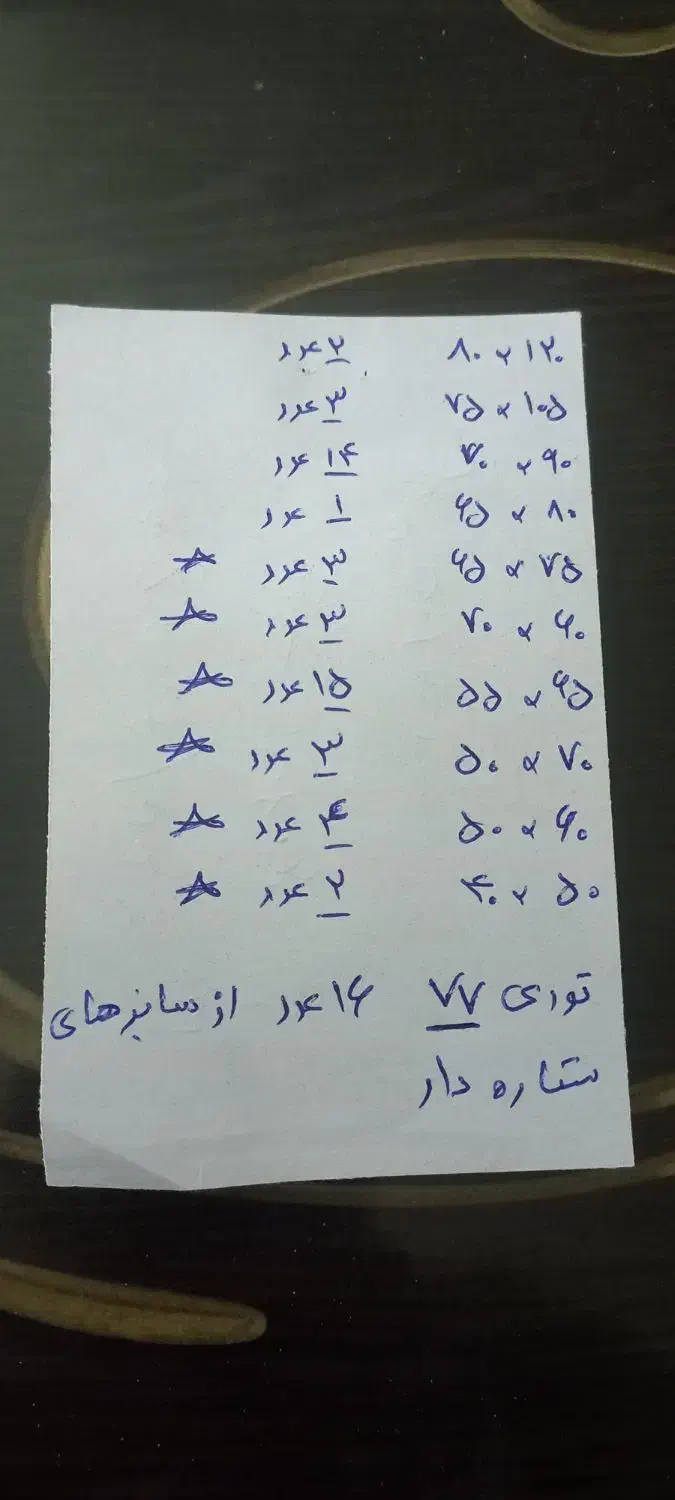 ۱۲۰ × ۸۰ ۲ عدد
۱۰۵ × ۷۵ ۳ عدد
۹۰ × ۷۰ ۱۴ عدد
۸۰ × ۶۵ ۱ عدد
۷۵ × ۶۵ ۳ عدد ☆
۶۰ × ۷۰ ۳ عدد ☆
۶۵ × ۵۵ ۱۵ عدد ☆
۷۰ × ۵۰ ۳ عدد ☆
۶۰ × ۵۰ ۴ عدد ☆
۵۰ × ۴۰ ۲ عدد ☆
توری ۷۷ ۱۶ عدد از سایزهای
ستاره دار